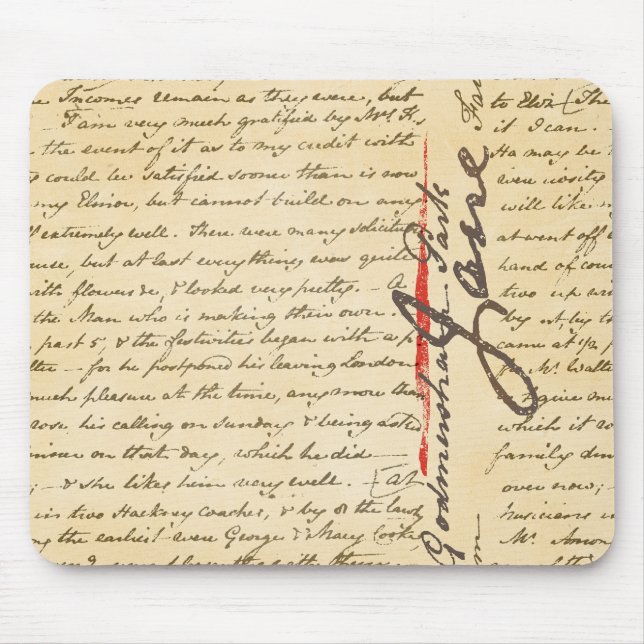 Incomes remain as they were, but
I am very much gratified by Mrs K.s
the event of it as to my credit with
could be satisfied sooner than is now
my Elinor, but cannot build on any
extremely well. There were many solicitu
but at last every thing was quite
with flowers &c, & looked very pretty. — A
the Man who is making their own.
past 5, & the festivities began with a p
for he postponed his leaving London
much pleasure at the time, any more than
his calling on Sunday & being asked
dinner on that day, which he did —
; — & she likes him very well. [at
in two Hackney coaches, & by of the law
the earliest were George & Mary Cooke
Godmersham Park
Jane
Far
to Eliz: [The
it I can.
Ha may be t
will like m
at went off
hand of cour
two up wr
by nt by t
came at 1/2 p
Mr. Walte
give m
which it ro
family din
over now;
musicians i
Mr. Amon